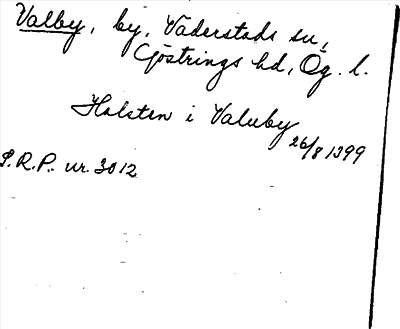 Valby, by, Väderstads sn,
Göstrings hd, Ög. l.
Holsten i Valuby
26/8 1399
S.R.P. nr. 3012